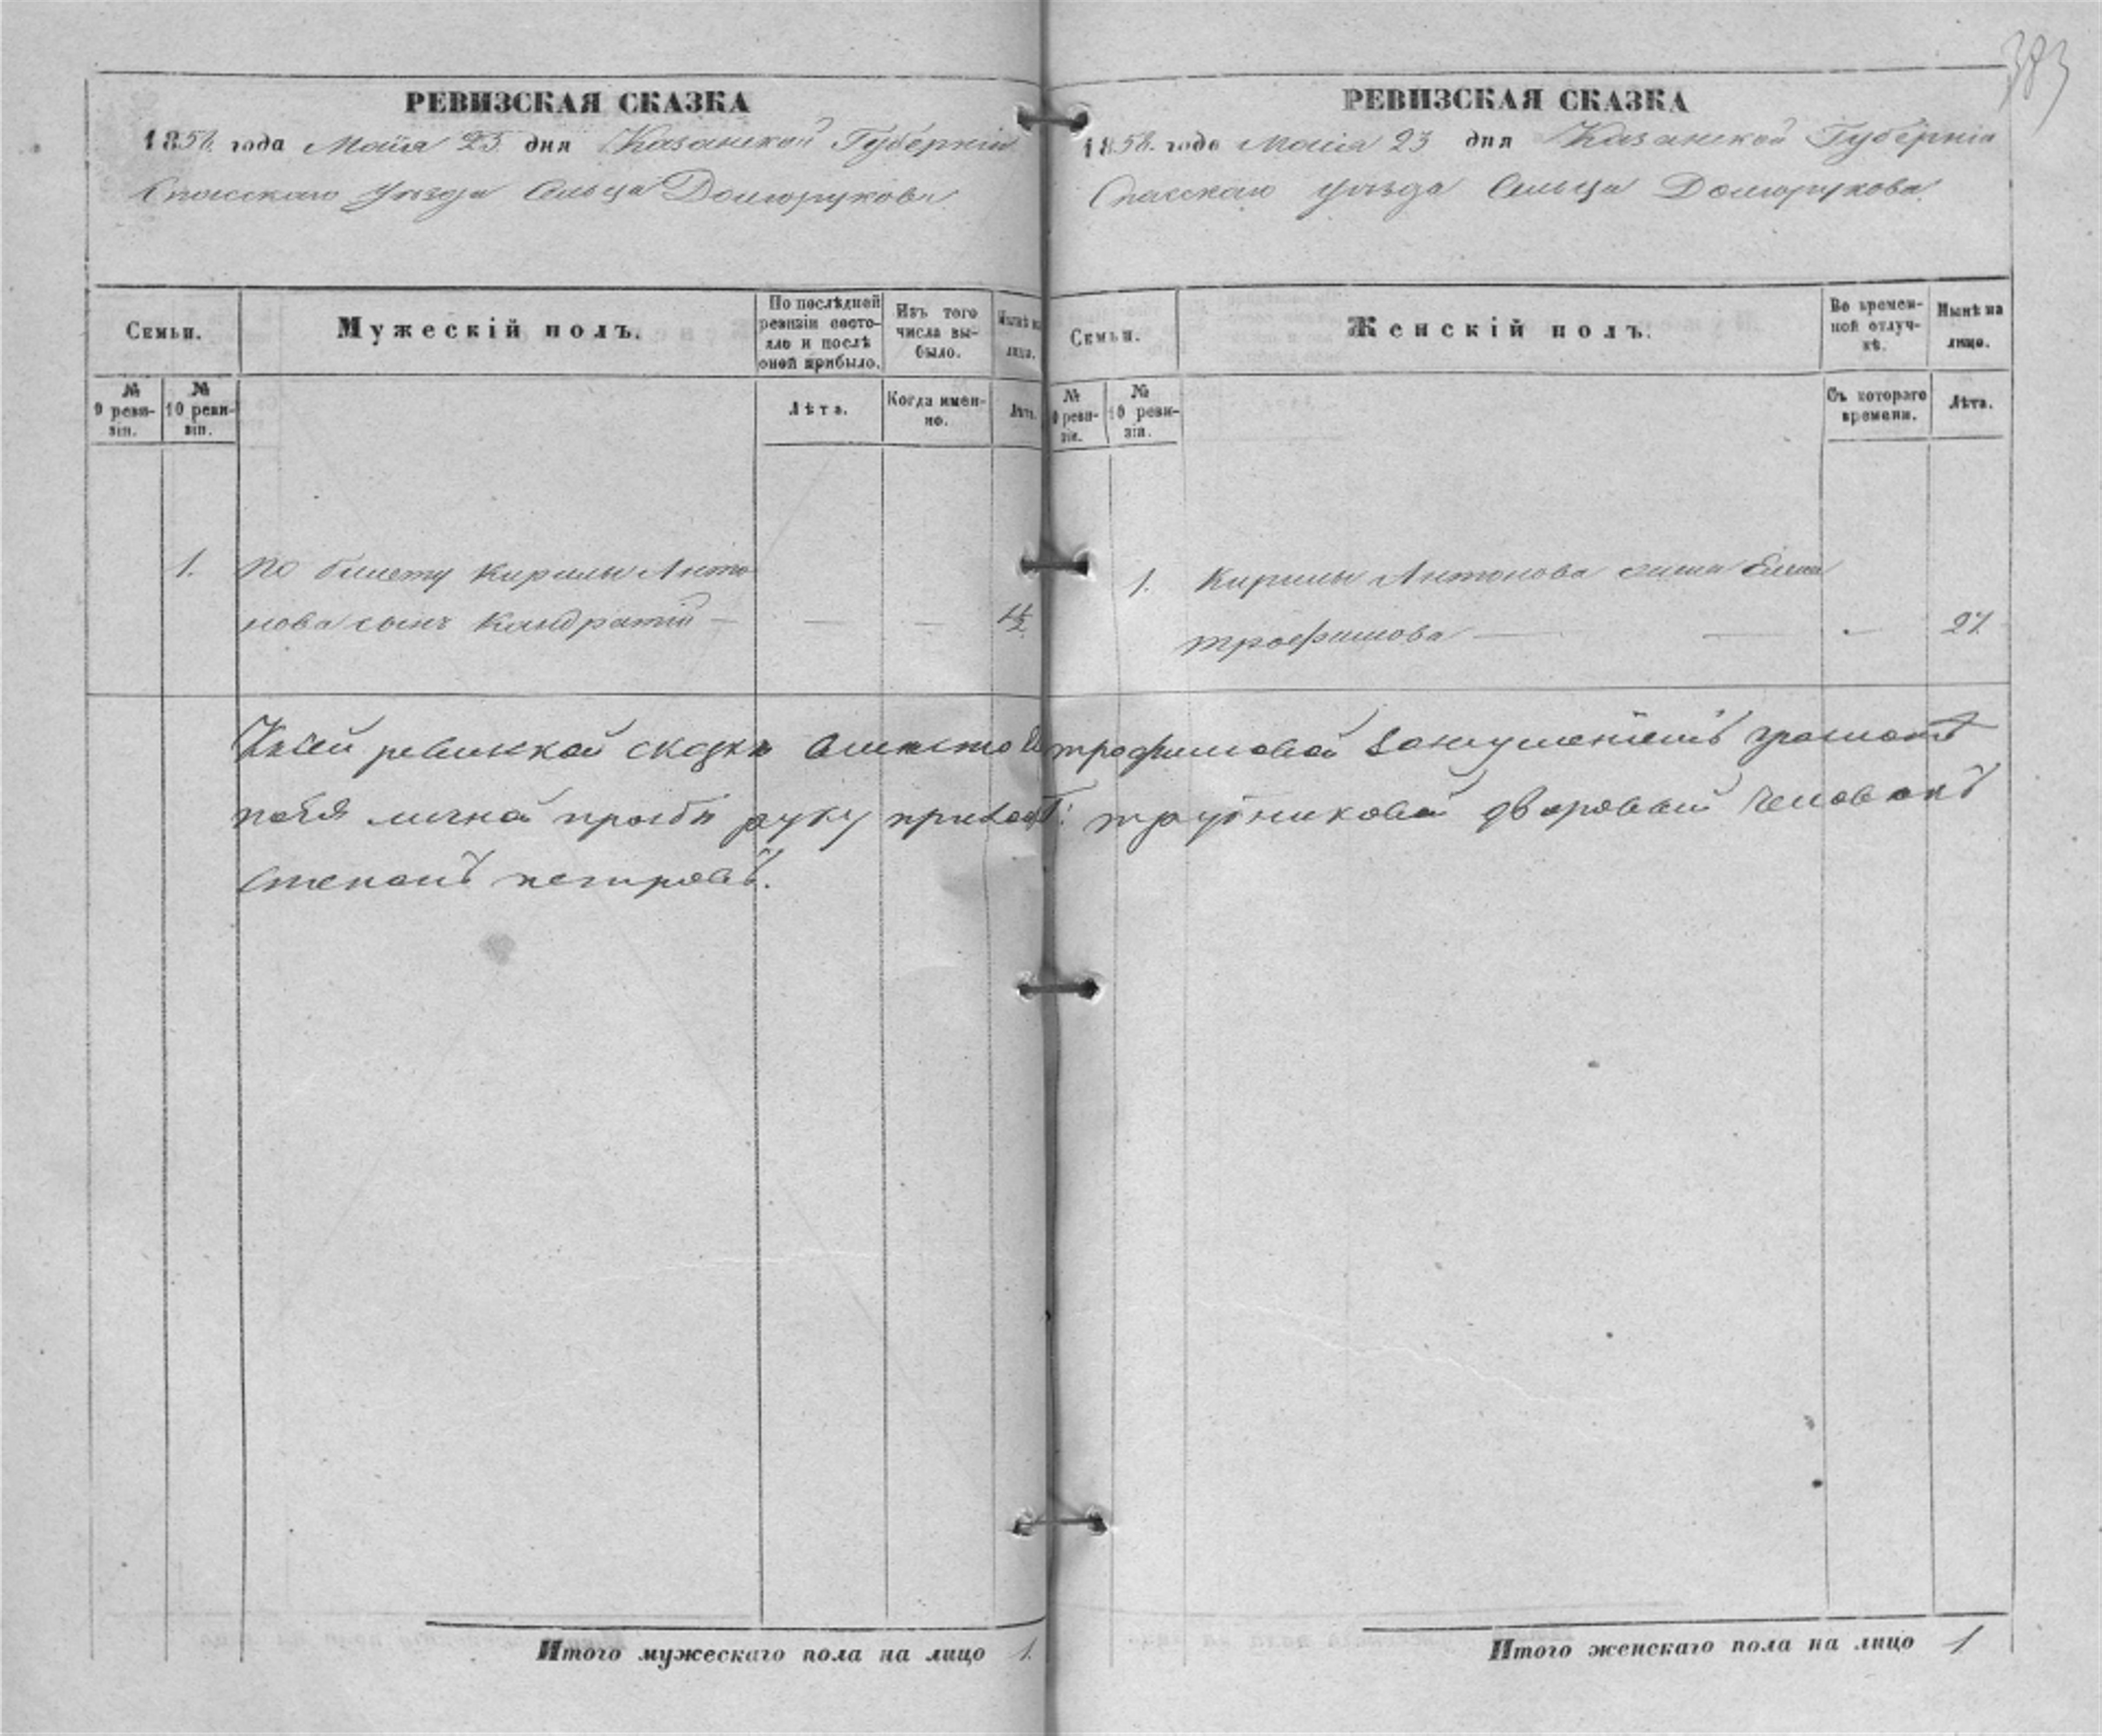 383
РЕВИЗСКАЯ СКАЗКА
1858. года Маия 23 дня Казанской Губерніи
Спасскаго уѣзда Сельца Долгорукова
Семьи.
Мужескій полъ.
По послѣдней ревизіи состояло и послѣ оной прибыло.
Изъ того числа выбыло.
Нынѣ на лицо.
№ 9 ревизіи.
№ 10 ревизіи.
Лѣта.
Когда именно.
Лѣта.
1. по билету Кирилы Анто
нова сынъ Кандратій — — — 1½
РЕВИЗСКАЯ СКАЗКА
1858. года Маия 23 дня Казанской Губерніи
Спасскаго уѣзда Сельца Долгорукова
Семьи.
Женскій полъ.
Во временной отлучкѣ.
Нынѣ на лицо.
№ 9 ревизіи.
№ 10 ревизіи.
Съ котораго времени.
Лѣта.
1. Кирилы Антонова жена Елена
трофимова — — — 27.
Ксей ревиской скаски вместо трофимовой грамоте
личной прозби руку дворовый человекъ
степанъ петровъ.
Итого мужескаго пола на лицо 1.
Итого женскаго пола на лицо 1